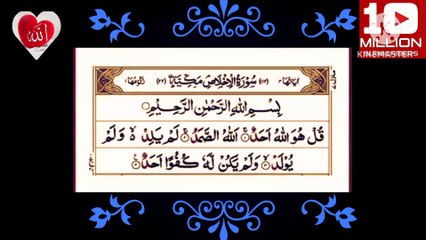 الله
10
MILLION
KINEMASTER
سُوْرَةُ الْاِخْلَاصِ مَكِّيَّةٌ
بِسْمِ اللهِ الرَّحْمٰنِ الرَّحِيْمِ
قُلْ هُوَ اللهُ اَحَدٌ اَللهُ الصَّمَدُ لَمْ يَلِدْ وَلَمْ
يُوْلَدْ وَلَمْ يَكُنْ لَّهٗ كُفُوًا اَحَدٌ